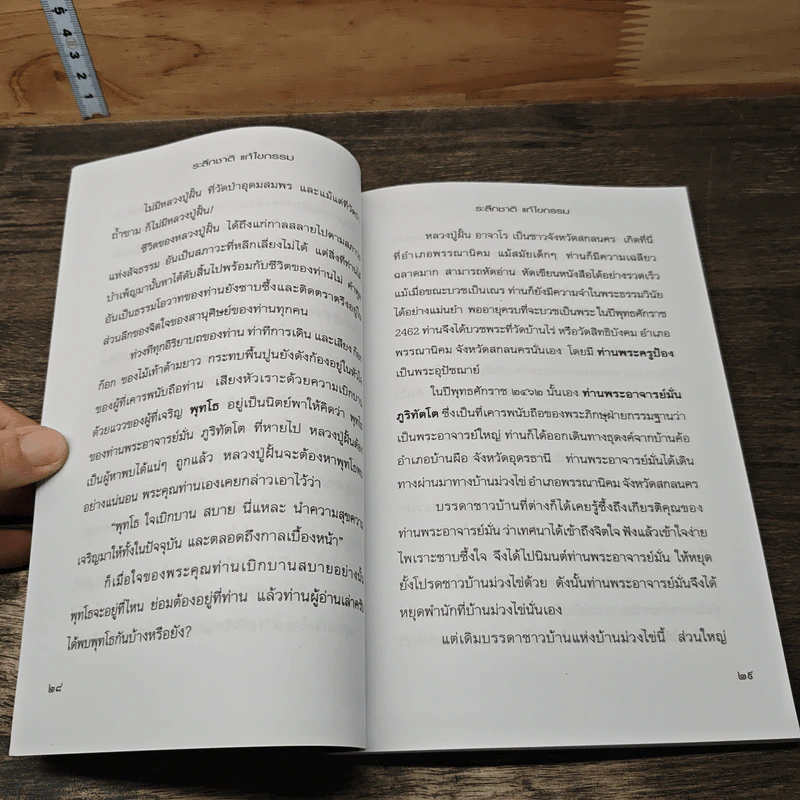 5 4 3 2 1
ระลึกชาติ แก้ไขกรรม
ไม่มีหลวงปู่ฝั้น ที่วัดป่าอุดมสมพร และแม้แต่ที่วัด
ถ้ำขาม ก็ไม่มีหลวงปู่ฝั้น!
ชีวิตของหลวงปู่ฝั้น ได้ถึงแก่กาลสลายไปตามสภาวะ
แห่งสัจธรรม อันเป็นสภาวะที่หลีกเลี่ยงไม่ได้ แต่สิ่งที่ท่านได้
บำเพ็ญมานั้นหาได้ดับสิ้นไปพร้อมกับชีวิตของท่านไม่
อันเป็นธรรมโอวาทของท่านยังซาบซึ้งและติดตราตรึงอยู่ใน
ส่วนลึกของจิตใจของสานุศิษย์ของท่านทุกคน
ท่วงทีทุกอิริยาบถของท่าน ท่าทีการเดิน และเสียง ก๊อก
ก๊อก ของไม้เท้าด้ามยาว กระทบพื้นปูนยังดังก้องอยู่ในหัวใจ
ของผู้ที่เคารพนับถือท่าน เสียงหัวเราะด้วยความเบิกบาน
ด้วยแววของผู้ที่เจริญ พุทโธ อยู่เป็นนิตย์พาให้คิดว่า พุทโธ
ของท่านพระอาจารย์มั่น ภูริทัตโต ที่หายไป หลวงปู่ฝั้นต้อง
เป็นผู้หาพบได้แน่ๆ ถูกแล้ว หลวงปู่ฝั้นจะต้องหาพุทโธพบ
อย่างแน่นอน พระคุณท่านเองเคยกล่าวเอาไว้ว่า
"พุทโธ ใจเบิกบาน สบาย นี่แหละ นำความสุขความ
เจริญมาให้ทั้งในปัจจุบัน และตลอดถึงกาลเบื้องหน้า"
ก็เมื่อใจของพระคุณท่านเบิกบานสบายอย่างนั้น
พุทโธจะอยู่ที่ไหน ย่อมต้องอยู่ที่ท่าน แล้วท่านผู้อ่านเล่าครับ
ได้พบพุทโธกันบ้างหรือยัง?
๒๘
ระลึกชาติ แก้ไขกรรม
หลวงปู่ฝั้น อาจาโร เป็นชาวจังหวัดสกลนคร เกิดที่นี่
ที่อำเภอพรรณานิคม แม้สมัยเด็กๆ ท่านก็มีความเฉลียว
ฉลาดมาก สามารถหัดอ่าน หัดเขียนหนังสือได้อย่างรวดเร็ว
แม้เมื่อขณะบวชเป็นเณร ท่านก็ยังมีความจำในพระธรรมวินัย
ได้อย่างแม่นยำ พออายุครบที่จะบวชเป็นพระ ในปีพุทธศักราช
2462 ท่านจึงได้บวชพระที่วัดบ้านไร่ หรือวัดสิทธิบังคม อำเภอ
พรรณานิคม จังหวัดสกลนครนั่นเอง โดยมี ท่านพระครูป้อง
เป็นพระอุปัชฌาย์
ในปีพุทธศักราช ๒๔๖๒ นั้นเอง ท่านพระอาจารย์มั่น
ภูริทัตโต ซึ่งเป็นที่เคารพนับถือของพระภิกษุฝ่ายกรรมฐานว่า
เป็นพระอาจารย์ใหญ่ ท่านก็ได้ออกเดินทางธุดงค์จากบ้านค้อ
อำเภอบ้านผือ จังหวัดอุดรธานี ท่านพระอาจารย์มั่นได้เดิน
ทางผ่านมาทางบ้านม่วงไข่ อำเภอพรรณานิคม จังหวัดสกลนคร
บรรดาชาวบ้านที่ต่างก็ได้เคยรู้ซึ้งถึงเกียรติคุณของ
ท่านพระอาจารย์มั่น ว่าเทศนาได้เข้าถึงจิตใจ ฟังแล้วเข้าใจง่าย
ไพเราะซาบซึ้งใจ จึงได้ไปนิมนต์ท่านพระอาจารย์มั่น ให้หยุด
ยั้งโปรดชาวบ้านม่วงไข่ด้วย ดังนั้นท่านพระอาจารย์มั่นจึงได้
หยุดพำนักที่บ้านม่วงไข่นั่นเอง
แต่เดิมบรรดาชาวบ้านแห่งบ้านม่วงไข่นี้ ส่วนใหญ่
๒๙